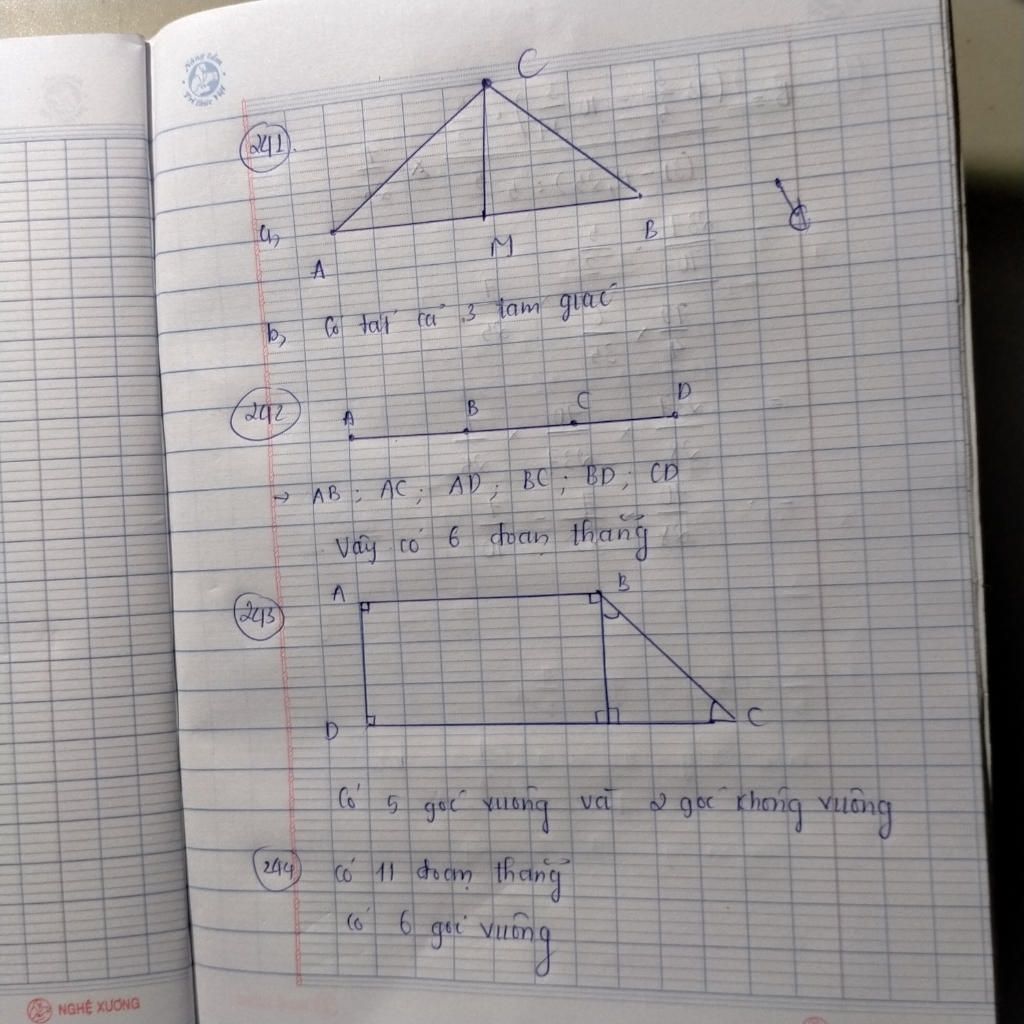 Nâng tầm
Trí thức Việt
C
241.
a,
A
M
B
b, Có tất cả 3 tam giác
242
A B C D
→ AB ; AC ; AD ; BC ; BD ; CD
Vậy có 6 đoạn thẳng
243
A B
D C
Có 5 góc vuông và 2 góc không vuông
244 Có 11 đoạn thẳng
Có 6 góc vuông
NGHỆ XƯƠNG